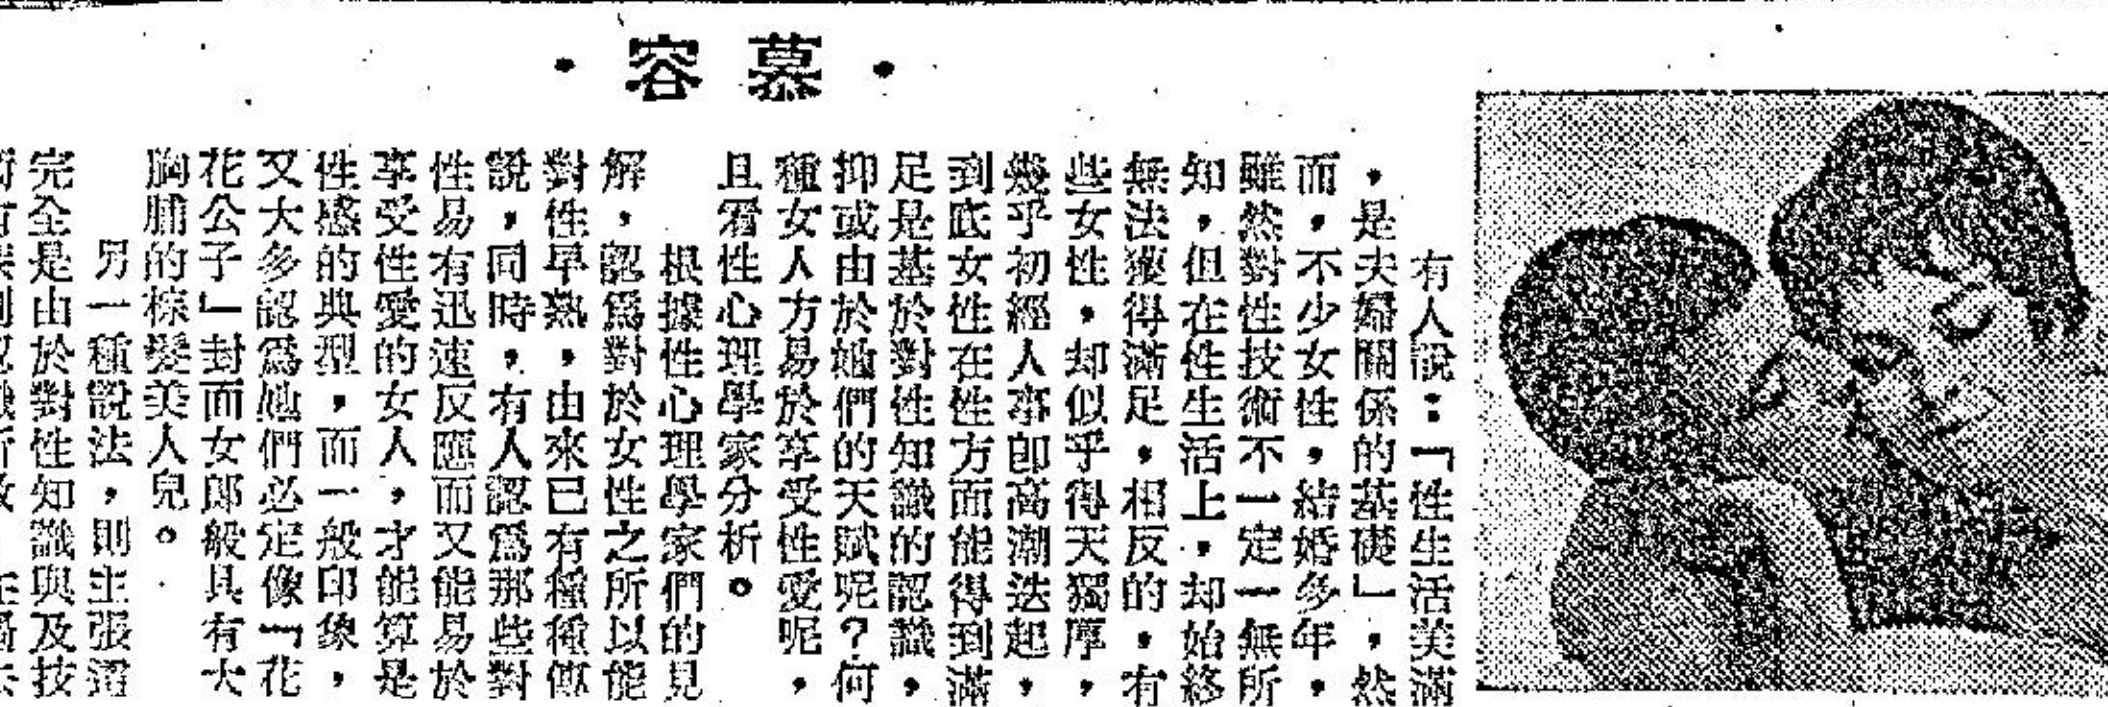 ・慕容・
有人說：「性生活美滿
，是夫婦關係的基礎」，然
而，不少女性，結婚多年，
雖然對性技術不一定一無所
知，但在性生活上，却始終
無法獲得滿足，相反的，有
些女性，却似乎得天獨厚，
幾乎初經人事卽高潮迭起，
到底女性在性方面能得到滿
足是基於對性知識的認識，
抑或由於她們的天賦呢？何
種女人方易於享受性愛呢，
且看性心理學家分析。
根據性心理學家們的見
解，認爲對於女性之所以能
對性早熟，由來已有種種傳
說，同時，有人認爲那些對
性易有迅速反應而又能易於
享受性愛的女人，才能算是
性感的典型，而一般印象，
又大多認爲她們必定像「花
花公子」封面女郎般具有大
胸脯的棕髮美人兒。
另一種說法，則主張這
完全是由於對性知識與及技